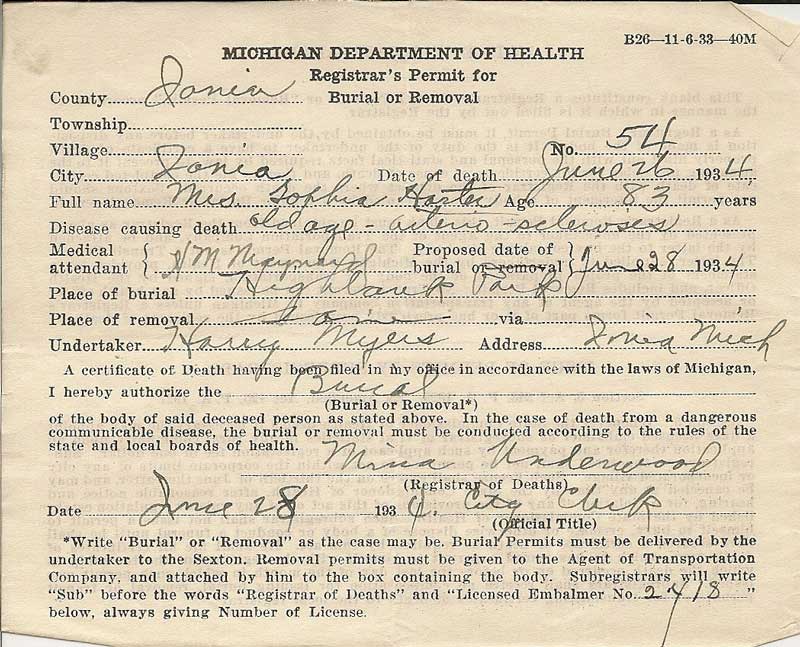 B26—11-6-33—40M
MICHIGAN DEPARTMENT OF HEALTH
Registrar's Permit for
County Ionia Burial or Removal
Township
Village No. 54
City Ionia Date of death June 26 1934
Full name Mrs. Sophia Harter Age 83 years
Disease causing death old age - arterio-scleroses
Medical attendant { H M Maynard Proposed date of burial or removal } June 28 1934
Place of burial Highland Park
Place of removal same via
Undertaker Harry Myers Address Ionia Mich
A certificate of Death having been filed in my office in accordance with the laws of Michigan,
I hereby authorize the Burial
(Burial or Removal*)
of the body of said deceased person as stated above. In the case of death from a dangerous
communicable disease, the burial or removal must be conducted according to the rules of the
state and local boards of health.
Mina Underwood
(Registrar of Deaths)
Date June 28 1934. City Clerk
(Official Title)
*Write "Burial" or "Removal" as the case may be. Burial Permits must be delivered by the
undertaker to the Sexton. Removal permits must be given to the Agent of Transportation
Company, and attached by him to the box containing the body. Subregistrars will write
"Sub" before the words "Registrar of Deaths" and "Licensed Embalmer No. 2418"
below, always giving Number of License.